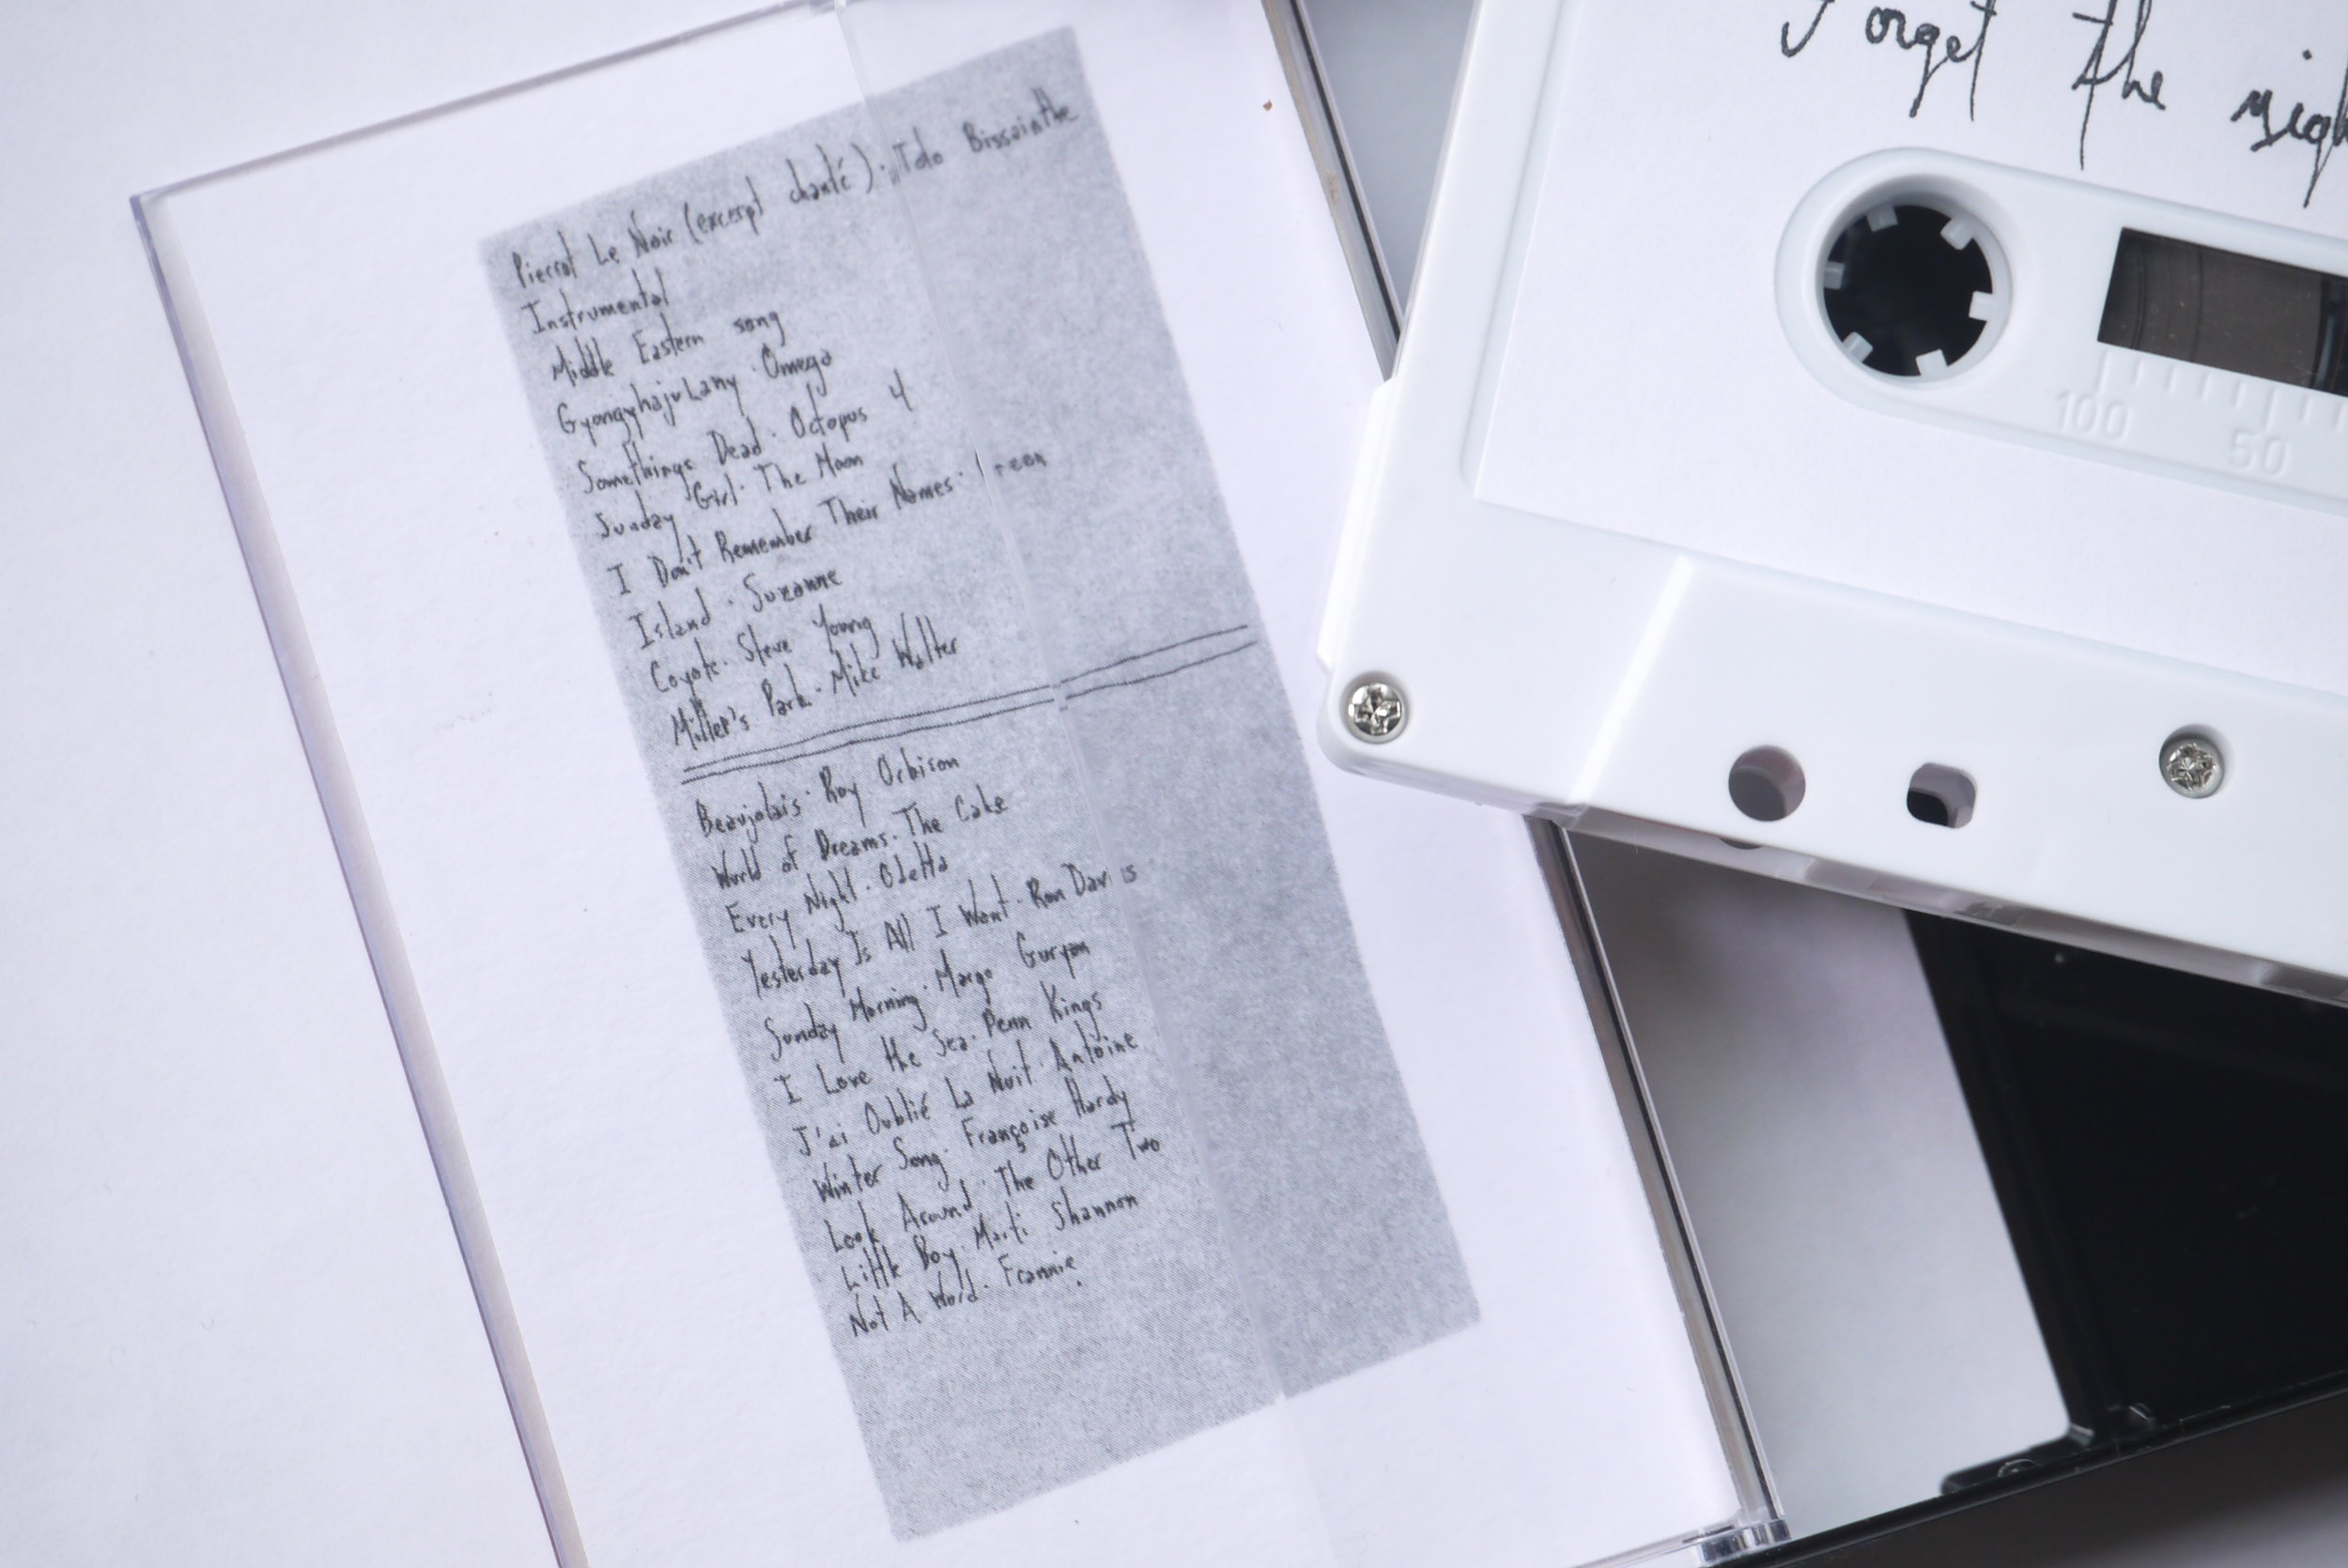 Pierrot Le Noir (excerpt chanté) · Toto Bissainthe
Instrumental
Middle Eastern song
Gyongyhajulany · Omega
Somethings Dead · Octopus 4
Sunday Girl · The Moon
I Don't Remember Their Names · Green
Island · Suzanne
Coyote · Steve Young
Miller's Park · Mike Walter
Beaujolais · Roy Orbison
World of Dreams · The Cake
Every Night · Odetta
Yesterday Is All I Want · Ron Davis
Sunday Morning · Margo Guryan
I Love the Sea · Penn Kings
J'ai Oublié La Nuit · Antoine
Winter Song · Françoise Hardy
Look Around · The Other Two
Little Boy · Marti Shannon
Not A Word · Frannie
Forget the
100 50